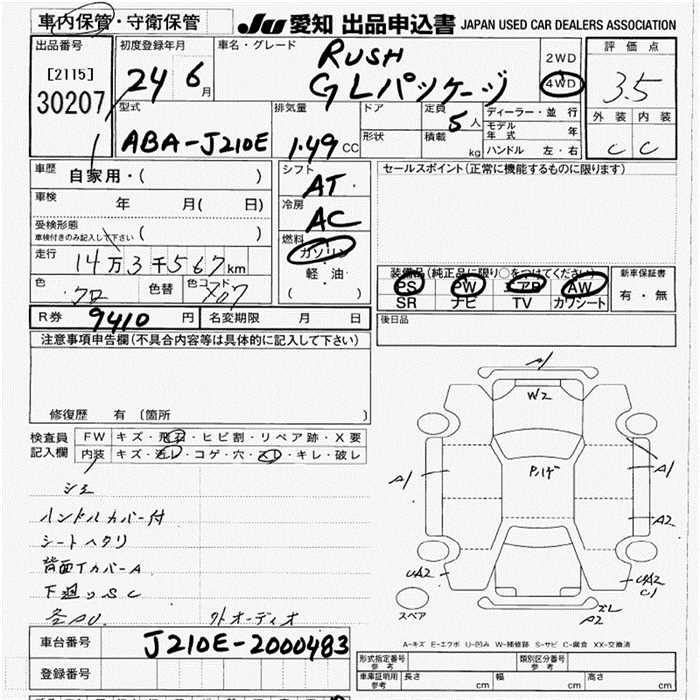 車内保管・守衛保管
JU 愛知 出品申込書 JAPAN USED CAR DEALERS ASSOCIATION
出品番号
[2115]
30207
初度登録年月
24 6月
車名・グレード
RUSH
GLパッケージ
2WD
4WD
評価点
3.5
外装 内装
C C
型式
ABA-J210E
排気量
1.49 CC
ドア
形状
定員
5人
積載
kg
ディーラー・並行
モデル年式 年
ハンドル 左・右
車歴
自家用・( )
車検
年 月( 日)
受検形態
車検付きのみ記入して下さい ( )
走行
14万3千567km
色
クロ
色替
色コード
X07
シフト
AT
冷房
AC
燃料
ガソリン
・
軽油
( )
セールスポイント(正常に機能するものに限ります)
装備品(純正品に限り○をつけてください)
PS PW エアB AW
SR ナビ TV カワシート
新車保証書
有・無
R券 9410 円
名変期限 月 日
後日品
注意事項申告欄(不具合内容等は具体的に記入して下さい)
修復歴 有 (箇所 )
検査員
記入欄
FW キズ・飛石・ヒビ割・リペア跡・X要
内装 キズ・汚レ・コゲ・穴・スレ・キレ・破レ
シミ
ハンドルカバー付
シートヘタリ
背面カバーA
下廻りSC
外オーディオ
A1
W2
A1
P.ハゲ
A1
A2
UA2
UA2
C1
スペア
スレ
A2
A-キズ E-エクボ U-凹み W-補修跡 S-サビ C-腐食 XX-交換済
車台番号
J210E-2000483
登録番号
形式指定番号
参考
類別区分番号
参考
車庫証明用
参考
長さ cm
幅 cm
高さ cm